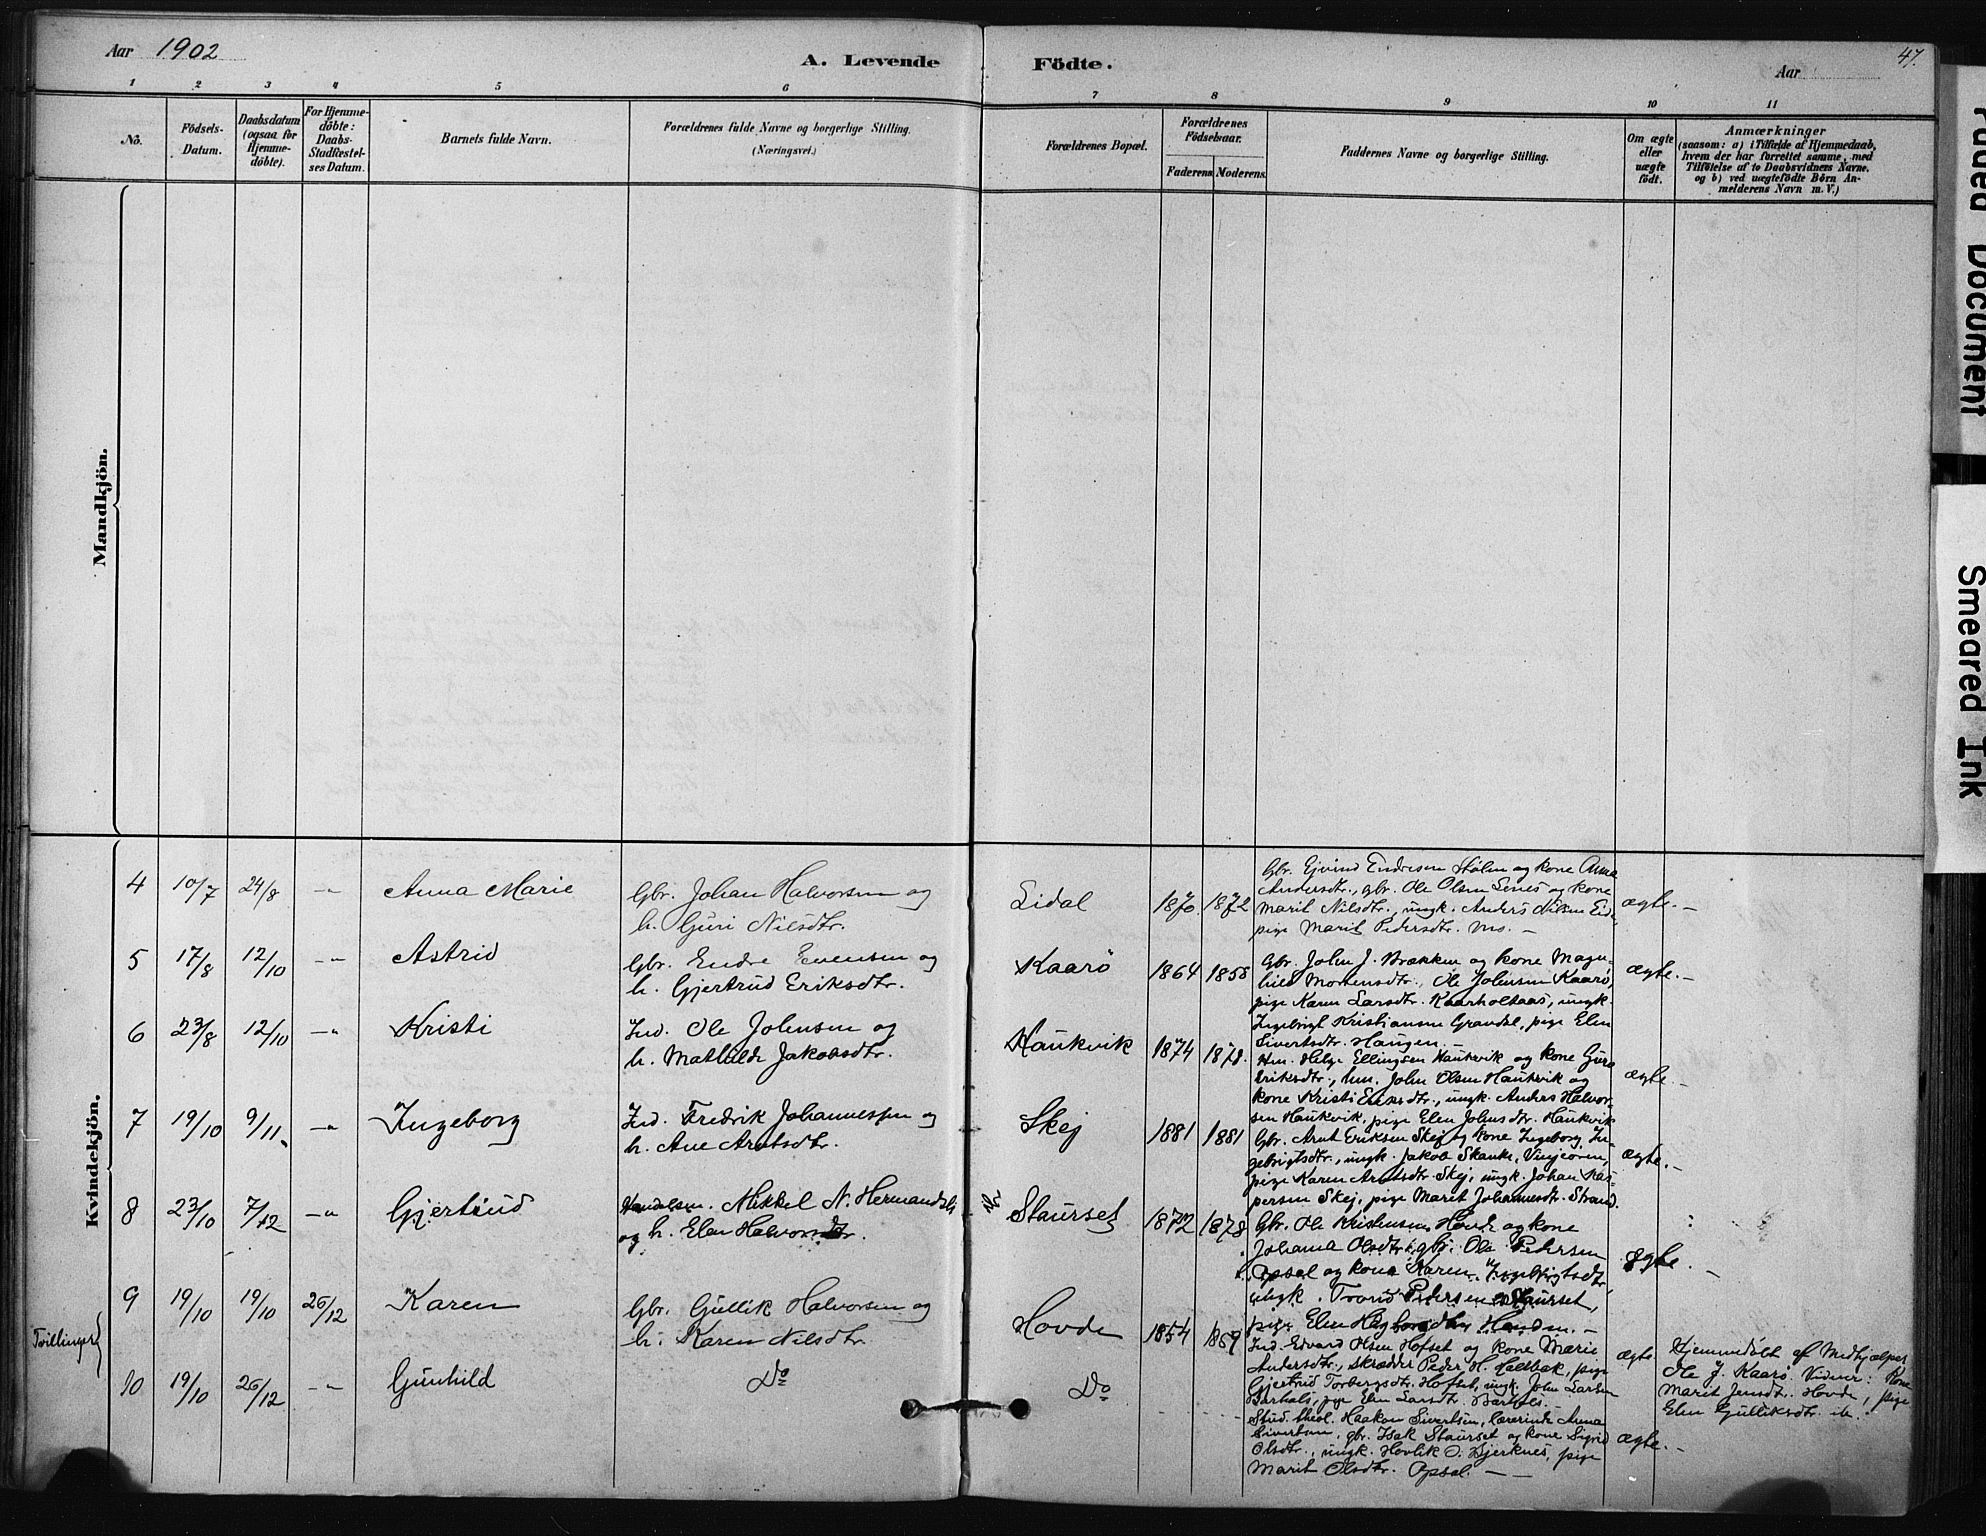 Aar 1902
A. Levende Födte.
Aar
47.
1 2 3 4 5 6 7 8 9 10 11
No.
Födsels-
Datum.
Daabsdatum
(ogsaa for
Hjemme-
döbte).
For Hjemme-
döbte:
Daabs-
Stadfæstel-
ses Datum.
Barnets fulde Navn.
Forældrenes fulde Navne og borgerlige Stilling.
(Næringsvei.)
Forældrenes Bopæl.
Forældrenes
Födselsaar.
Faderens. Moderens.
Faddernes Navne og borgerlige Stilling.
Om ægte
eller
uægte
födt.
Anmærkninger
(saasom: a) i Tilfælde af Hjemmedaab,
hvem der har forrettet samme, med
Tilföielse af to Daabsvidners Navne.
og b) ved uægtefödte Börn An-
melderens Navn m. V.)
Mandkjön.
Kvindekjön.
4 10/7 24/8 -"- Anna Marie
Gbr. Johan Halvorsen og
h. Guri Nilsdtr.
Lidal 1870. 1872
Gbr. Ejvind Endresen Stølen og kone Anna
Andersdtr., gbr. Ole Olsen Lenes og kone
Marit Nilsdtr., ungk. Anders Nilsen Eid,
pige Marit Pedersdtr. Mo. -
ægte. -
5 17/8 12/10 -"- Astrid
Gbr. Endre Evensen og
h. Gjertrud Eriksdtr.
Kaarø 1864 1855
Gbr. John J. Brækken og kone Magn-
hild Mortensdtr., Ole Johnsen Kaarø,
pige Karen Larsdtr. Kaarholtaas, ungk.
Ingebrigt Kristiansen Grandal, pige Elen
Sivertsdtr. Haugen. -
ægte. -
6 23/8 12/10 -"- Kristi
Ind. Ole Johnsen og
h. Mathilde Jakobsdtr.
Haukvik 1874 1878.
Hm. Helge Ellingsen Haukvik og kone Guro
Eriksdtr., hm. John Olsen Haukvik og
kone Kristi Eriksdtr., ungk. Anders Halvor-
sen Haukvik, pige Elen Johnsdtr. Haukvik
ægte. -
7 19/10 9/11. -"- Ingeborg
Ind. Fredrik Johannessen og
h. Ane Arntsdtr.
Skej 1881 1881
Gbr. Arnt Eriksen Skej og kone Ingeborg In-
gebrigtsdtr., ungk. Jakob Skanke, Vinjeøren,
pige Karen Arntsdtr. Skej, ungk. Johan Kas-
persen Skej, pige Marit Johannesdtr. Strand.
ægte. -
8 23/10 7/12 -"- Gjertrud
Handelsm. Mikkel N. Hermandsli
og h. Elen Halvorsdtr.
Staurset 1872 1878
Gbr. Ole Kristensen Hovde og kone
Johanna Olsdtr., gbr. Ole Pedersen
Opsal og kone Karen Ingebrigtsdtr.,
ungk. Tronid Pedersen Staurset,
pige Elen
ægte. -
Tvillinger
9 19/10 19/10 26/12 Karen
Gbr. Gullik Halvorsen og
h. Karen Nilsdtr.
Hovde 1854 1859
Ind. Edvard Olsen Hofset og kone Marie
Andersdtr., skrædder Peder H. Hallbak, pige
Gjertrud Torbergsdtr. Hofset, ungk. John Larsen
Barhals, pige Elen Larsdtr. Barhals. -
ægte
Hjemmedøbt af Medhjælper
Ole J. Kaarø. Vidner: Kone
Marit Jensdtr. Hovde, pige
Elen Gulliksdtr. ib.
10 19/10 26/12 -"- Gunhild
Do
Do
Stud. theol. Haakon Sivertsen, lærerinde Anna
Sivertsen, gbr. Isak Staurset og kone Sigrid
Olsdtr., ungk. Hovlik O. Bjerknes, pige
Marit Olsdtr. Opsal. - -
ægte. -
Faded Document
Smeared Ink